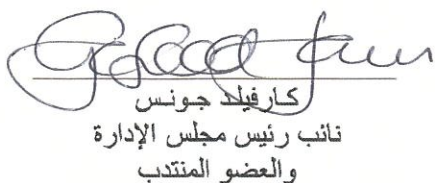 كارفيلد جونس
نائب رئيس مجلس الإدارة
والعضو المنتدب